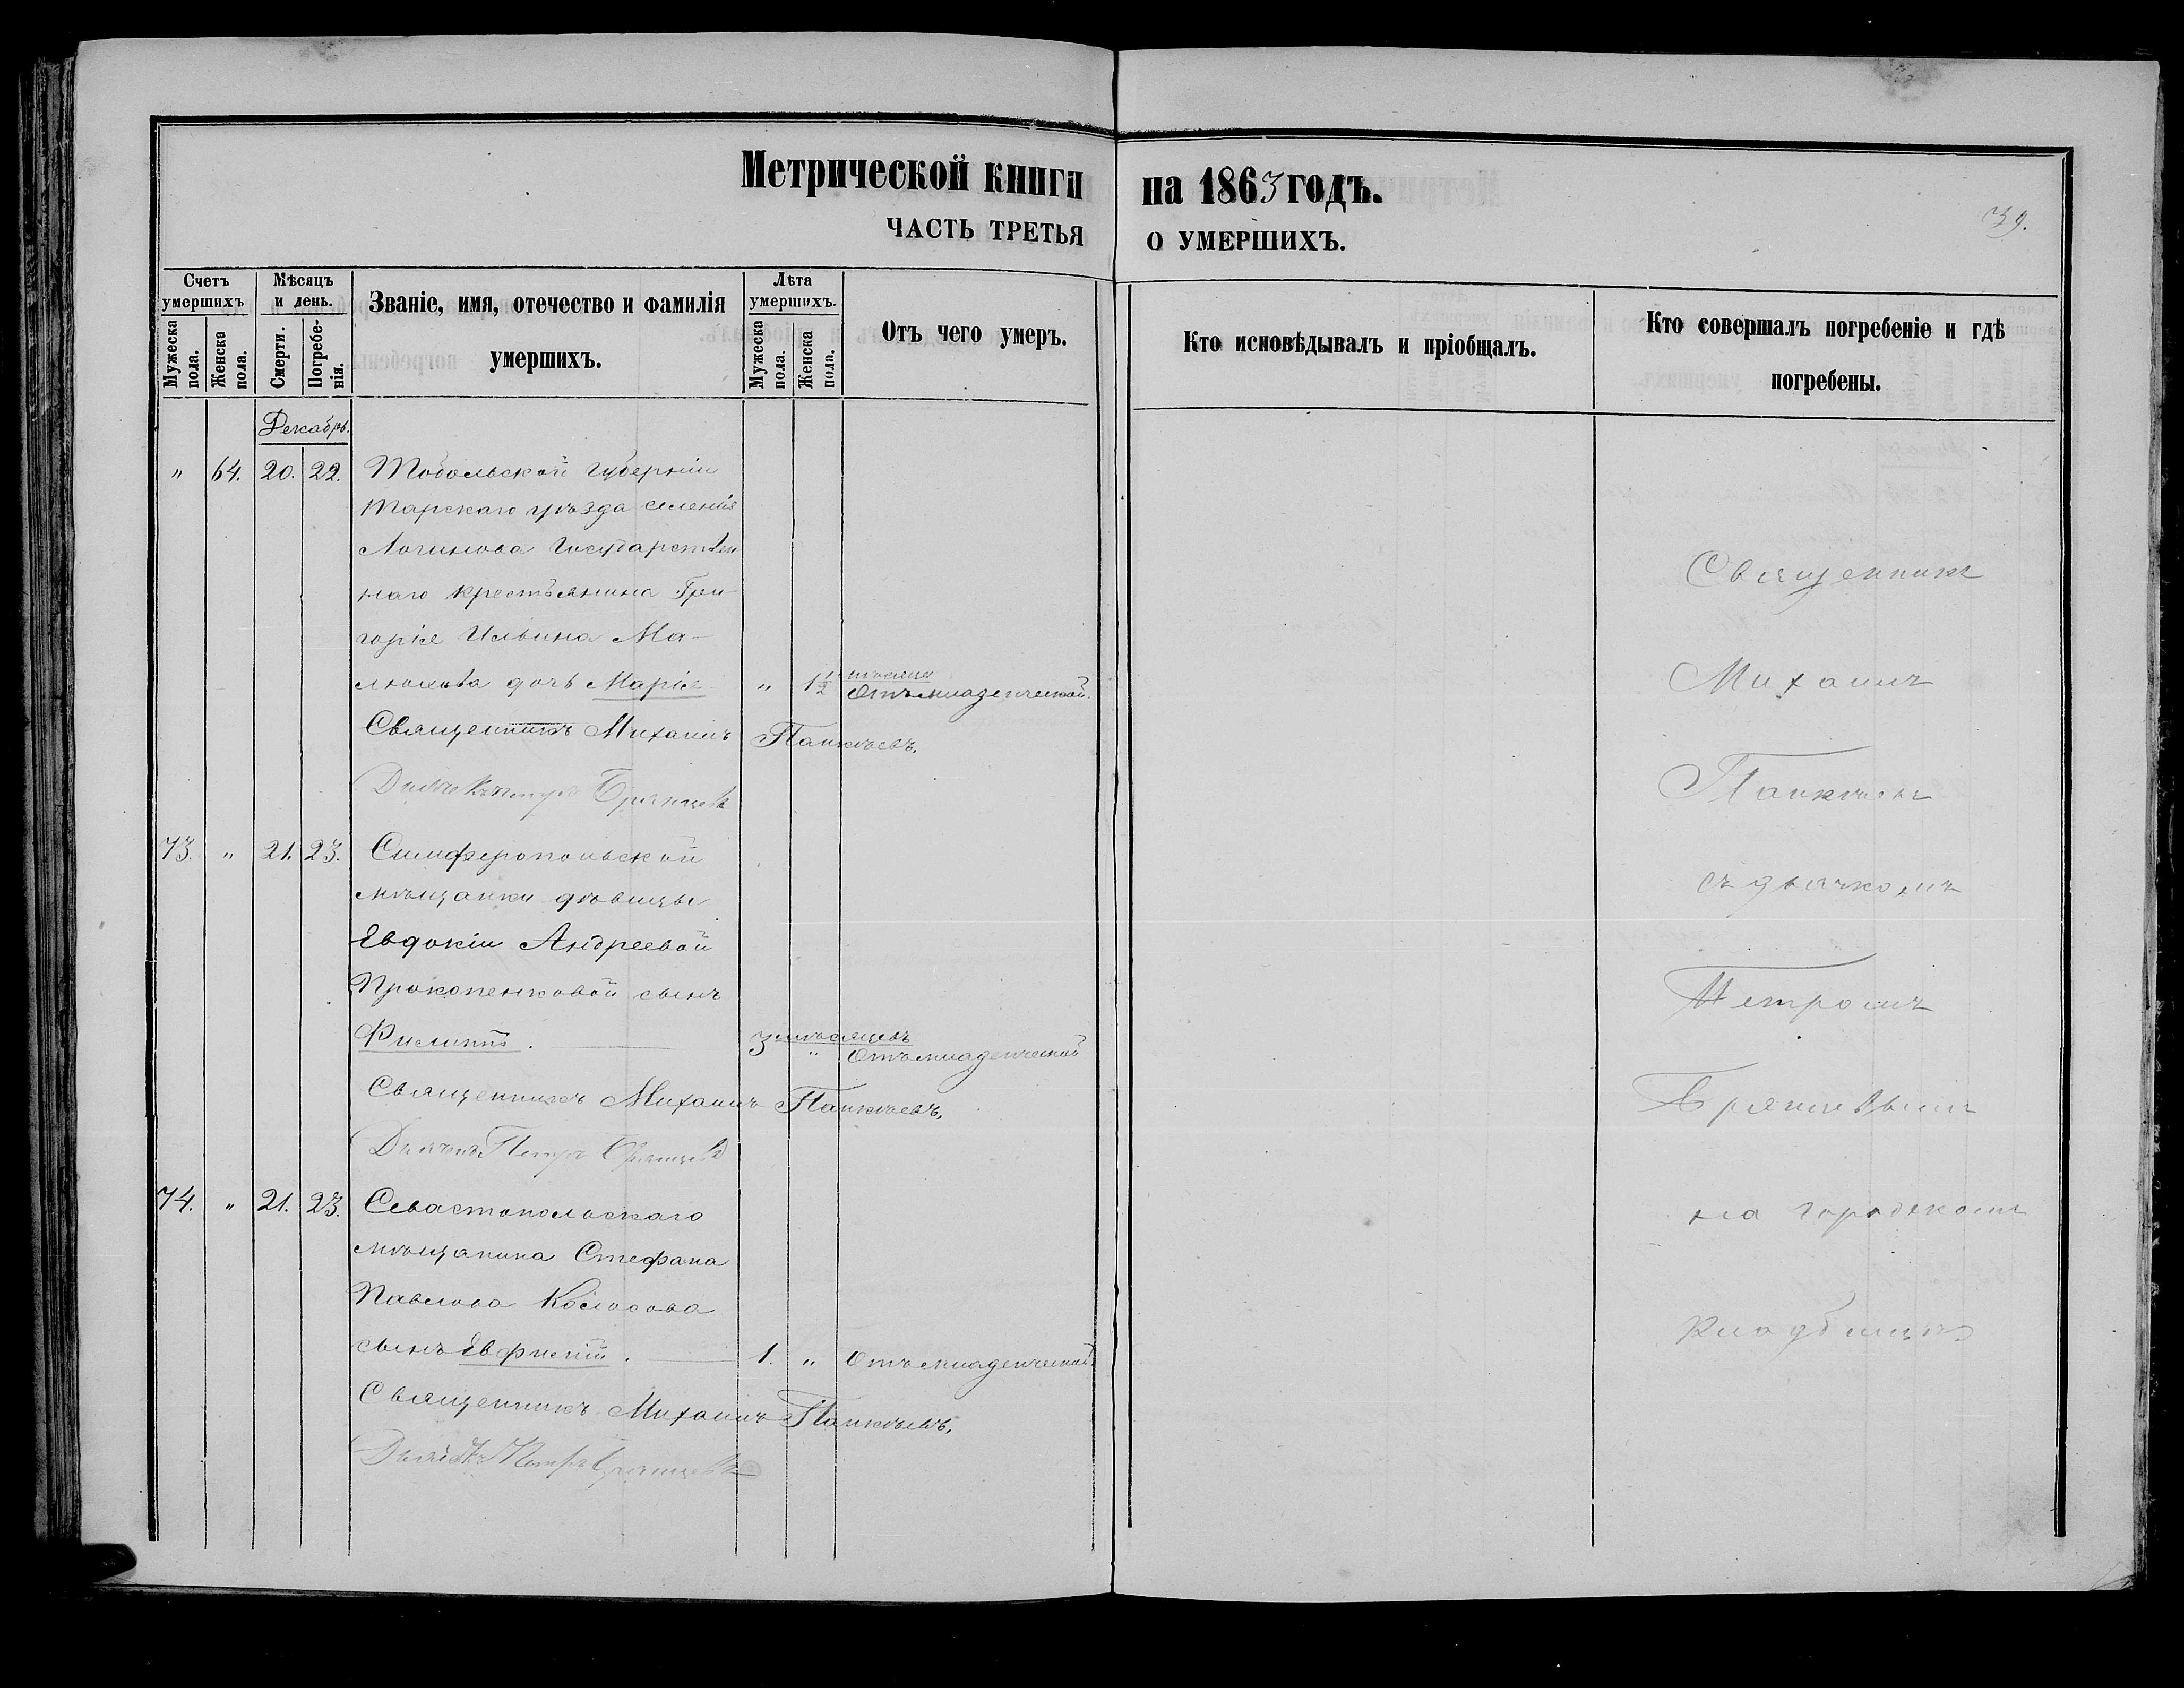 Метрической книги на 1863 годъ.
39.
ЧАСТЬ ТРЕТЬЯ О УМЕРШИХЪ.
Счетъ умершихъ
Мужеска пола.
Женска пола.
Мѣсяцъ и день.
Смерти.
Погребенія.
Званіе, имя, отечество и фамилія умершихъ.
Лѣта умершихъ.
Мужеска пола.
Женска пола.
Отъ чего умеръ.
Кто исповѣдывалъ и пріобщалъ.
Кто совершалъ погребеніе и гдѣ погребены.
Декабрь.
" 64. 20. 22. Тобольской губерніи
Тарскаго уѣзда селенія
Логинова Государствен
наго крестьянина Гри
горія Ильина Ма-
дочь Марія " 1 1/2 мѣсяца Отъ младенческой.
Священникъ Михаилъ Панкѣевъ.
Дьячекъ Петръ Брянцевъ
73. " 21. 23. Симферопольской
мѣщанки дѣвицы
Евдокіи Андреевой
Прокопенковой сынъ
Филиппъ. 3 мѣсяцевъ " Отъ младенческой
Священникъ Михаилъ Панкѣевъ.
Дьячекъ Петръ Брянцевъ
74. " 21. 23. Севастопольскаго
мѣщанина Стефана
Павлова Колосова
сынъ Евфимій. 1. " Отъ младенческой.
Священникъ Михаилъ Панкѣевъ.
Дьячекъ Петръ Брянцевъ
Священникъ
Михаилъ
Панкѣевъ
съ дьячкомъ
Петромъ
Брянцевымъ
на городскомъ
кладбищѣ